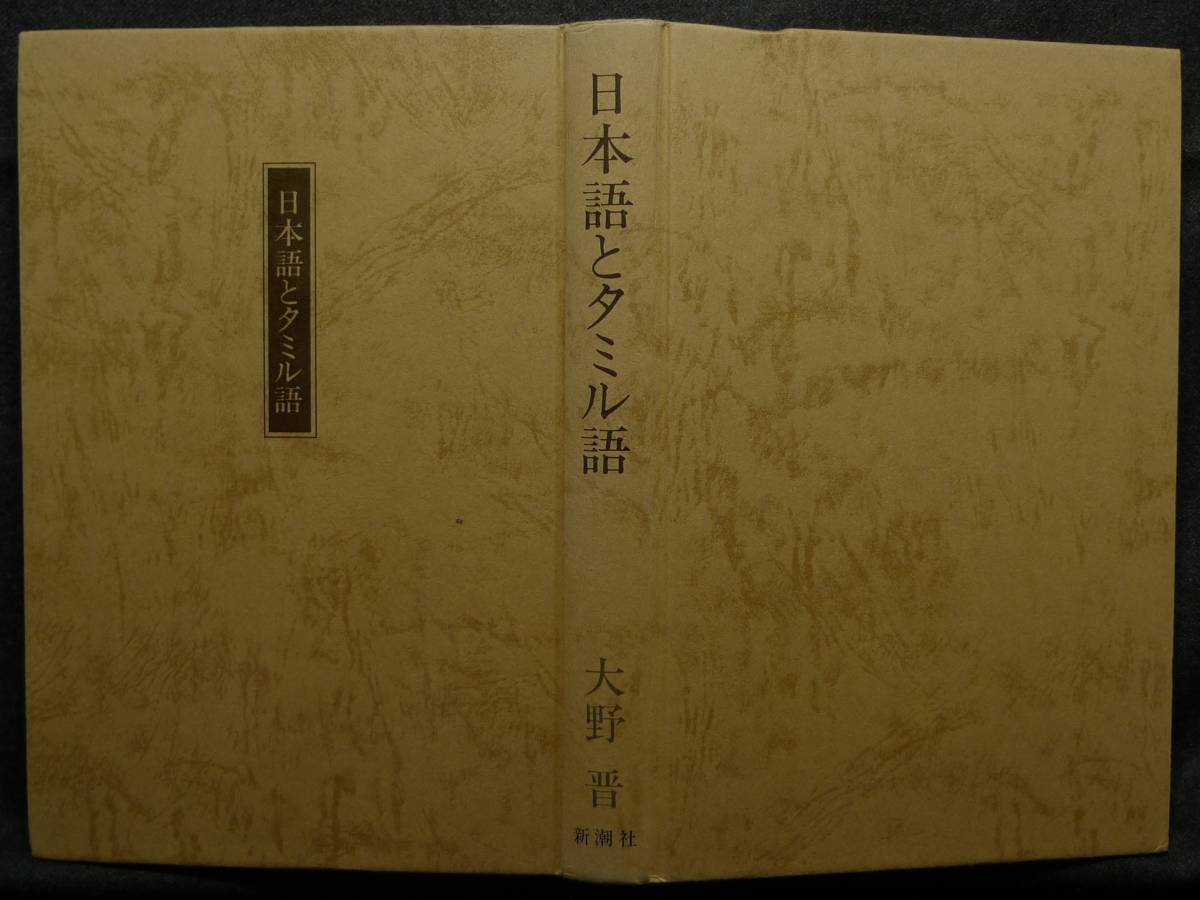 日本語とタミル語
日本語とタミル語
大野 晋
新潮社